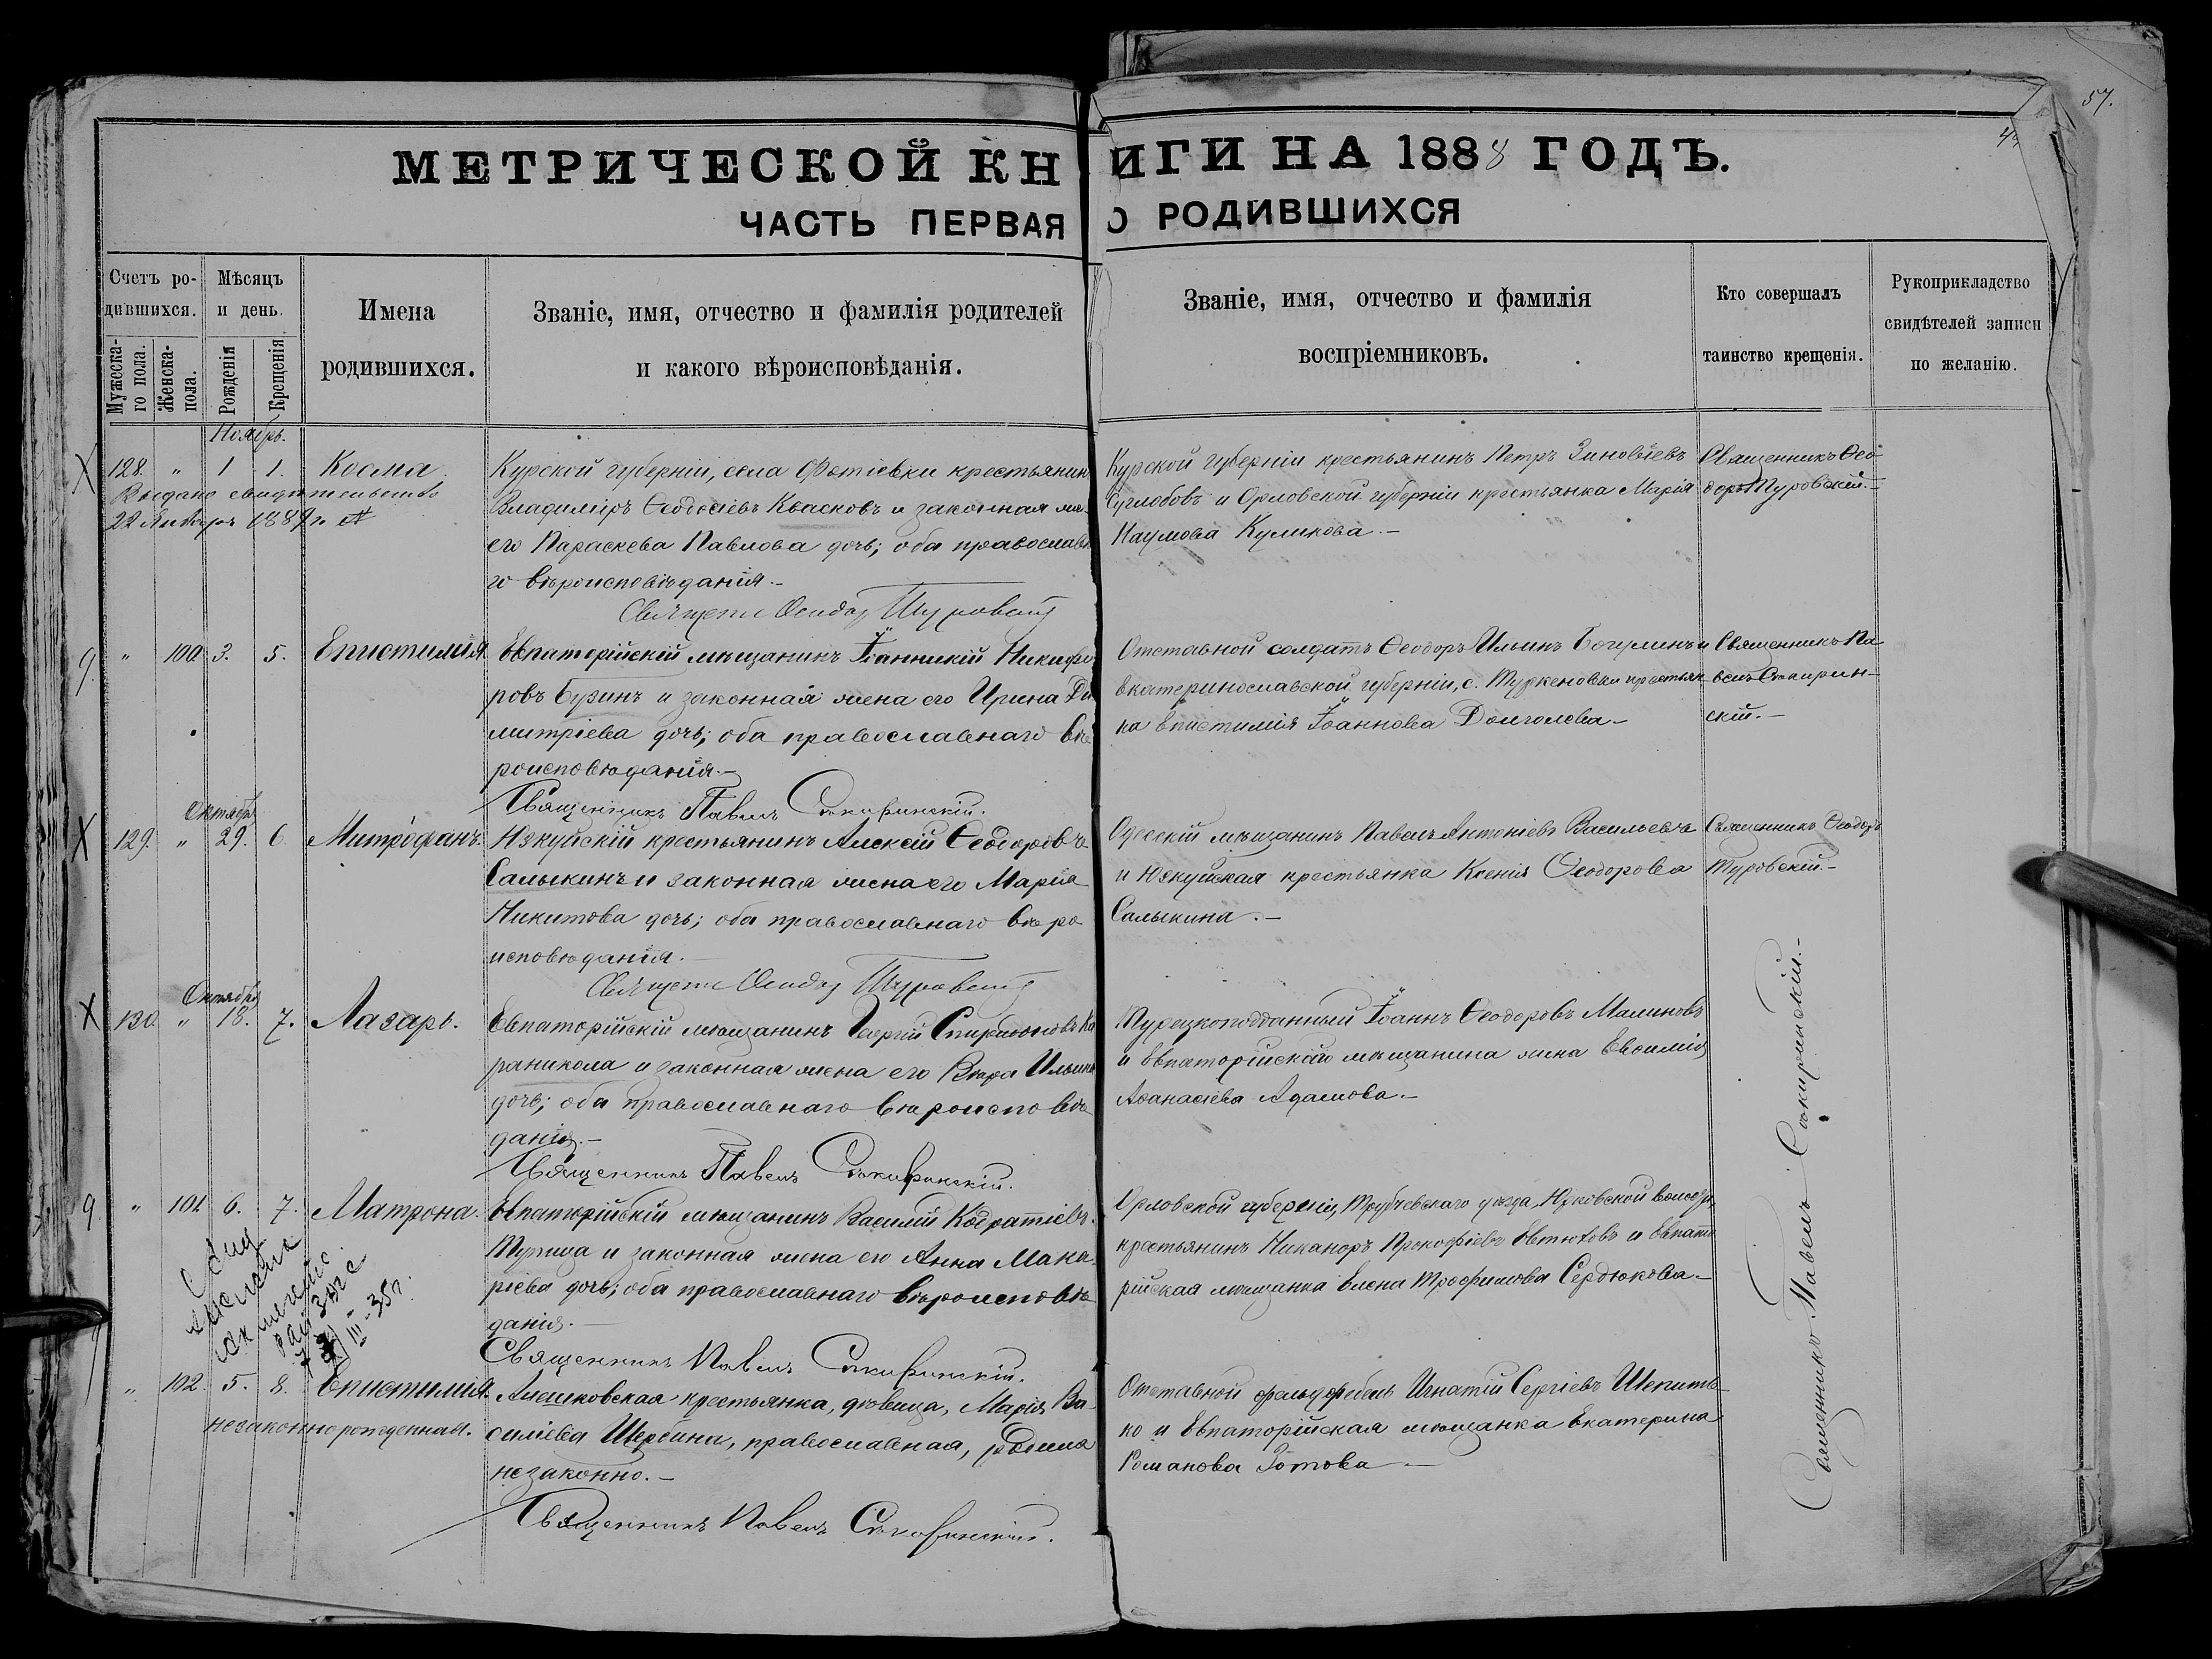 57.
МЕТРИЧЕСКОЙ КНИГИ НА 1888 ГОДЪ.
ЧАСТЬ ПЕРВАЯ О РОДИВШИХСЯ
Счетъ ро-
дившихся.
Мужеска-
го пола.
Женска-
пола.
Мѣсяцъ
и день.
Рожденія
Крещенія
Имена
родившихся.
Званіе, имя, отчество и фамилія родителей
и какого вѣроисповѣданія.
Званіе, имя, отчество и фамилія
воспріемниковъ.
Кто совершалъ
таинство крещенія.
Рукоприкладство
свидѣтелей записи
по желанію.
Ноябрь.
X 128. " 1 1. Косма
Выдано свидѣтельство
22 Января 1889 г.
Курской губерніи, села Фатіевки крестьянинъ
Владиміръ Ѳеодосіевъ Квасковъ и законная же-
его Параскева Павлова дочь; оба православн
го вѣроисповѣданія.-
Священн Ѳеодор Туровскій
Курской губерніи крестьянинъ Петръ Зиновіевъ
Суглобовъ и Орловской губерніи крестьянка Марія
Наумова Куликова.-
Священникъ Ѳео-
доръ Туровскій.-
9 " 100. 3. 5. Епистимія.
Евпаторійскій мѣщанинъ Іоанникій Никифо
ровъ Буринъ и законная жена его Ирина Ди
митріева дочь; оба православнаго вѣ
роисповѣданія.-
Священникъ Павелъ Сокиринскій.
Отставной солдатъ Ѳеодоръ Ильинъ Богулинъ и
Екатеринославской губерніи, с. Туркеновки крестьян
ка Епистимія Іоаннова Долголева.-
Священникъ Па
велъ Сокирин-
скій.-
Октября
X 129. " 29. 6. Митрофанъ.
Юзкуйскій крестьянинъ Алексій Ѳеодоровъ
Салыкинъ и законная жена его Марія
Никитова дочь; оба православнаго вѣро
исповѣданія.
Священн Ѳеодор Туровскій
Одесскій мѣщанинъ Павелъ Антоніевъ Васильевъ
и Юзкуйская крестьянка Ксенія Ѳеодорова
Салыкина.-
Священникъ Ѳеодоръ
Туровскій.-
Октября
X 130. " 18. 7. Лазарь.
Евпаторійскій мѣщанинъ Георгій Спиридоновъ Ка
раникола и законная жена его Вѣра Ильина
дочь; оба православнаго вѣроисповѣ
данія.-
Священникъ Павелъ Сокиринскій.
Турецкоподданный Іоаннъ Ѳеодоровъ Малиновъ
и Евпаторійскаго мѣщанина жена Евфимія
Аѳанасіева Адамова.-
9 " 101. 6. 7. Матрона.
III - 35 г.
Евпаторійскій мѣщанинъ Василій Кодратіевъ
Тупица и законная жена его Анна Мака
ріева дочь; оба православнаго вѣроисповѣ
данія.-
Священникъ Павелъ Сокиринскій.
Орловской губерніи, Трубчевскаго уѣзда, Юрковской волости,
крестьянинъ Никаноръ Прокофіевъ Евтюховъ и Евпато
рійская мѣщанка Елена Трофимова Сердюкова.-
" 102. 5. 8. Епистимія.
незаконнорожденная.
Алешковская крестьянка, дѣвица, Марія Ва-
силіева Щербина, православная, родила
незаконно.-
Священникъ Павелъ Сокиринскій.
Отставной фельдфебель Игнатій Сергіевъ Шепить-
ко и Евпаторійская мѣщанка Екатерина
Романова Зотова.-
Священникъ Павелъ Сокиринскій.-